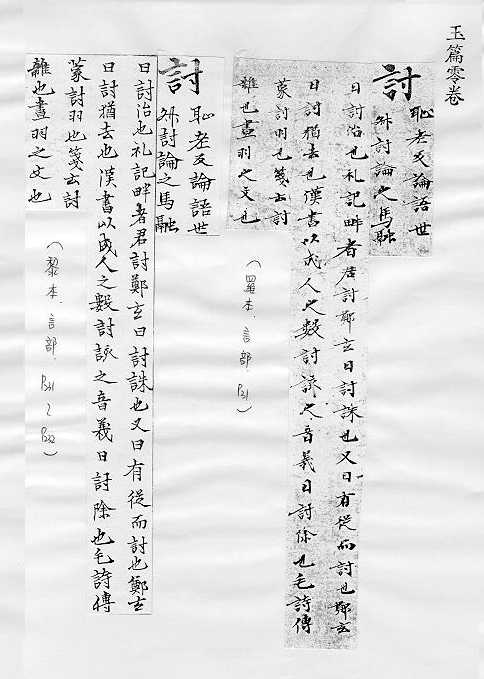 玉篇零卷
討
耻老反論語世
舛討論之馬融
曰討治也礼記畔者君討鄭玄曰討誅也又曰有從而討也鄭玄
曰討猶去也漢書以成人之數討之音義曰討除也毛詩傳
蒙討羽也箋云討
雜也畫羽之文也
(羅本.言部.P21)
討
耻老反論語世
舛討論之馬融
曰討治也礼記畔者君討鄭玄曰討誅也又曰有從而討也鄭玄
曰討猶去也漢書以成人之數討之音義曰討除也毛詩傳
蒙討羽也箋云討
雜也畫羽之文也
(黎本.言部.)